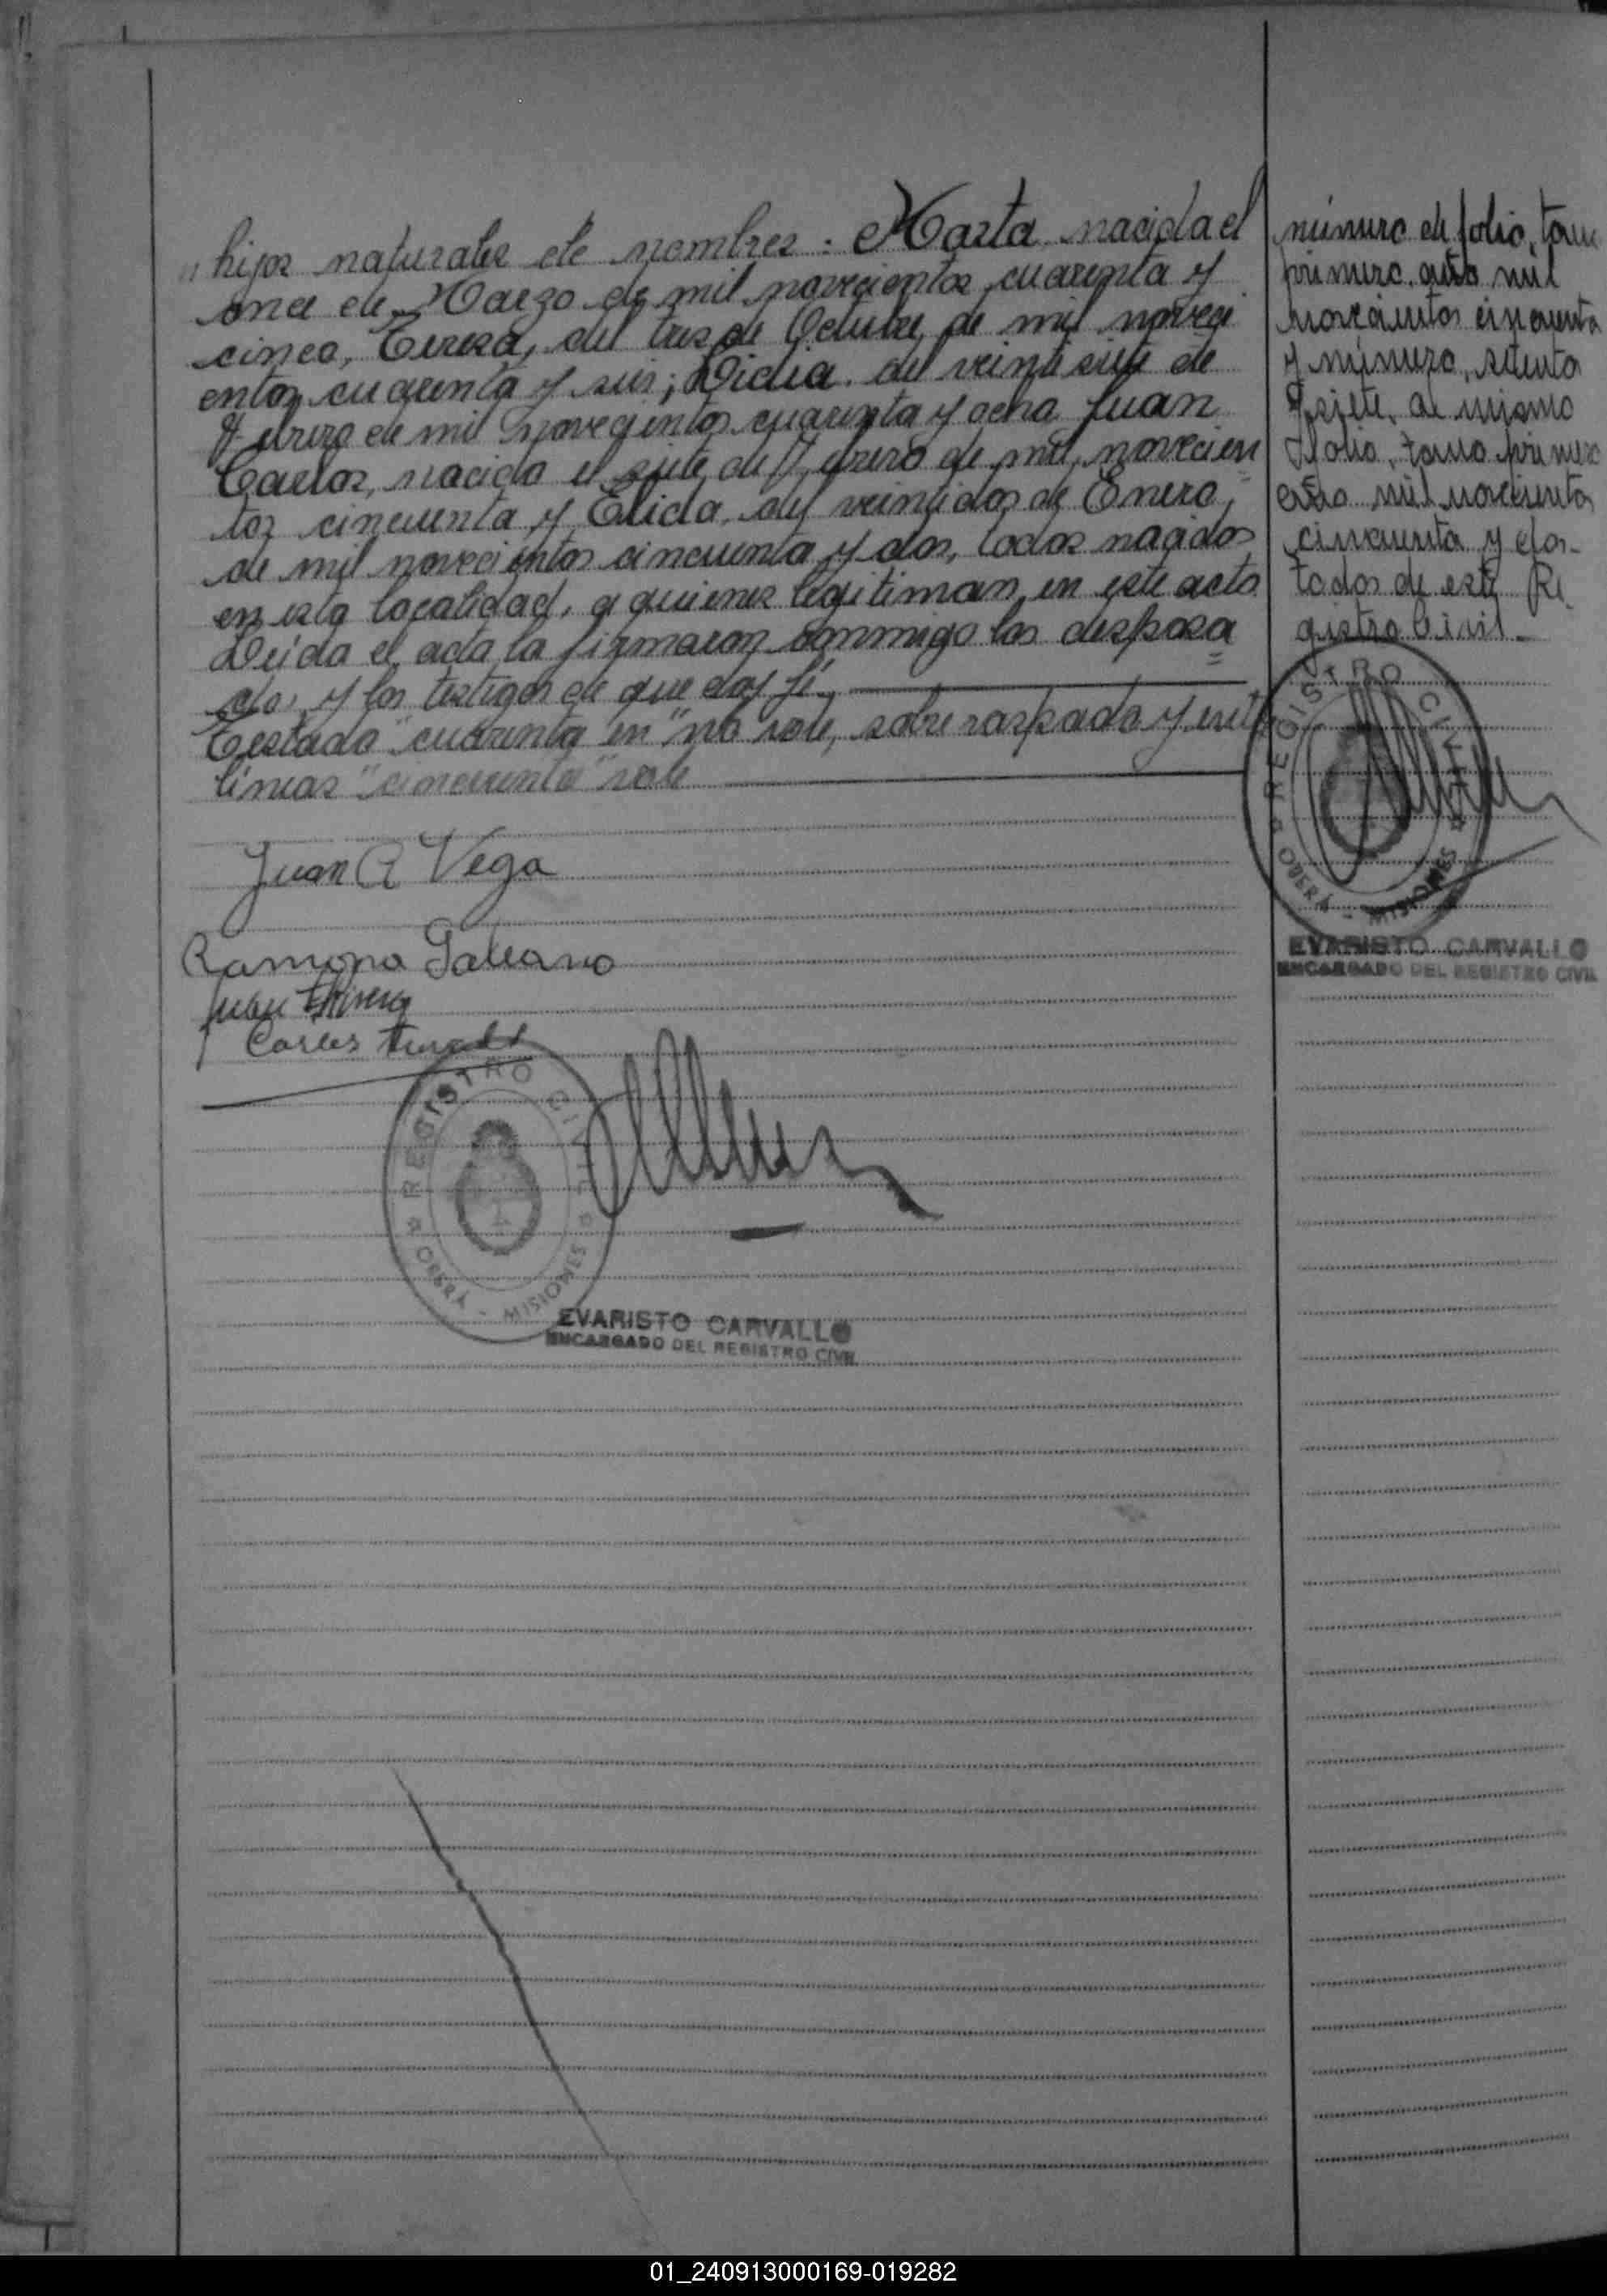 hijos naturales de nombres: Marta nacida el
once de Marzo de mil novecientos cuarenta y
cinco, Teresa, del tres de Octubre de mil noveci
entos cuarenta y seis; Lidia. del veintisiete de
Febrero de mil novecientos cuarenta y ocho Juan
Carlos, nacido el siete de Febrero de mil novecien
tos cincuenta y Elida, del veintidos de Enero,
de mil novecientos cincuenta y dos, todos nacidos
en esta localidad, a quienes legitiman en este acto
Leida el acta la firmaron conmigo los desposa=
dos y los testigos de que doy fé.
Testado "cuarenta en" no vale, sobre raspado y entre
líneas "cincuenta" vale
Juan A Vega
Ramona Galeano
Juan
Carlos
REGISTRO CIVIL
OBERÁ - MISIONES
EVARISTO CARVALLO
ENCARGADO DEL REGISTRO CIVIL
número de folio, tomo
primero, año mil
novecientos cincuenta
y número, setenta
y siete, al mismo
folio, tomo primero
año mil novecientos
cincuenta y dos-
todos de este Re
gistro Civil-
REGISTRO CIVIL
OBERÁ - MISIONES
EVARISTO CARVALLO
ENCARGADO DEL REGISTRO CIVIL
01_240913000169-019282